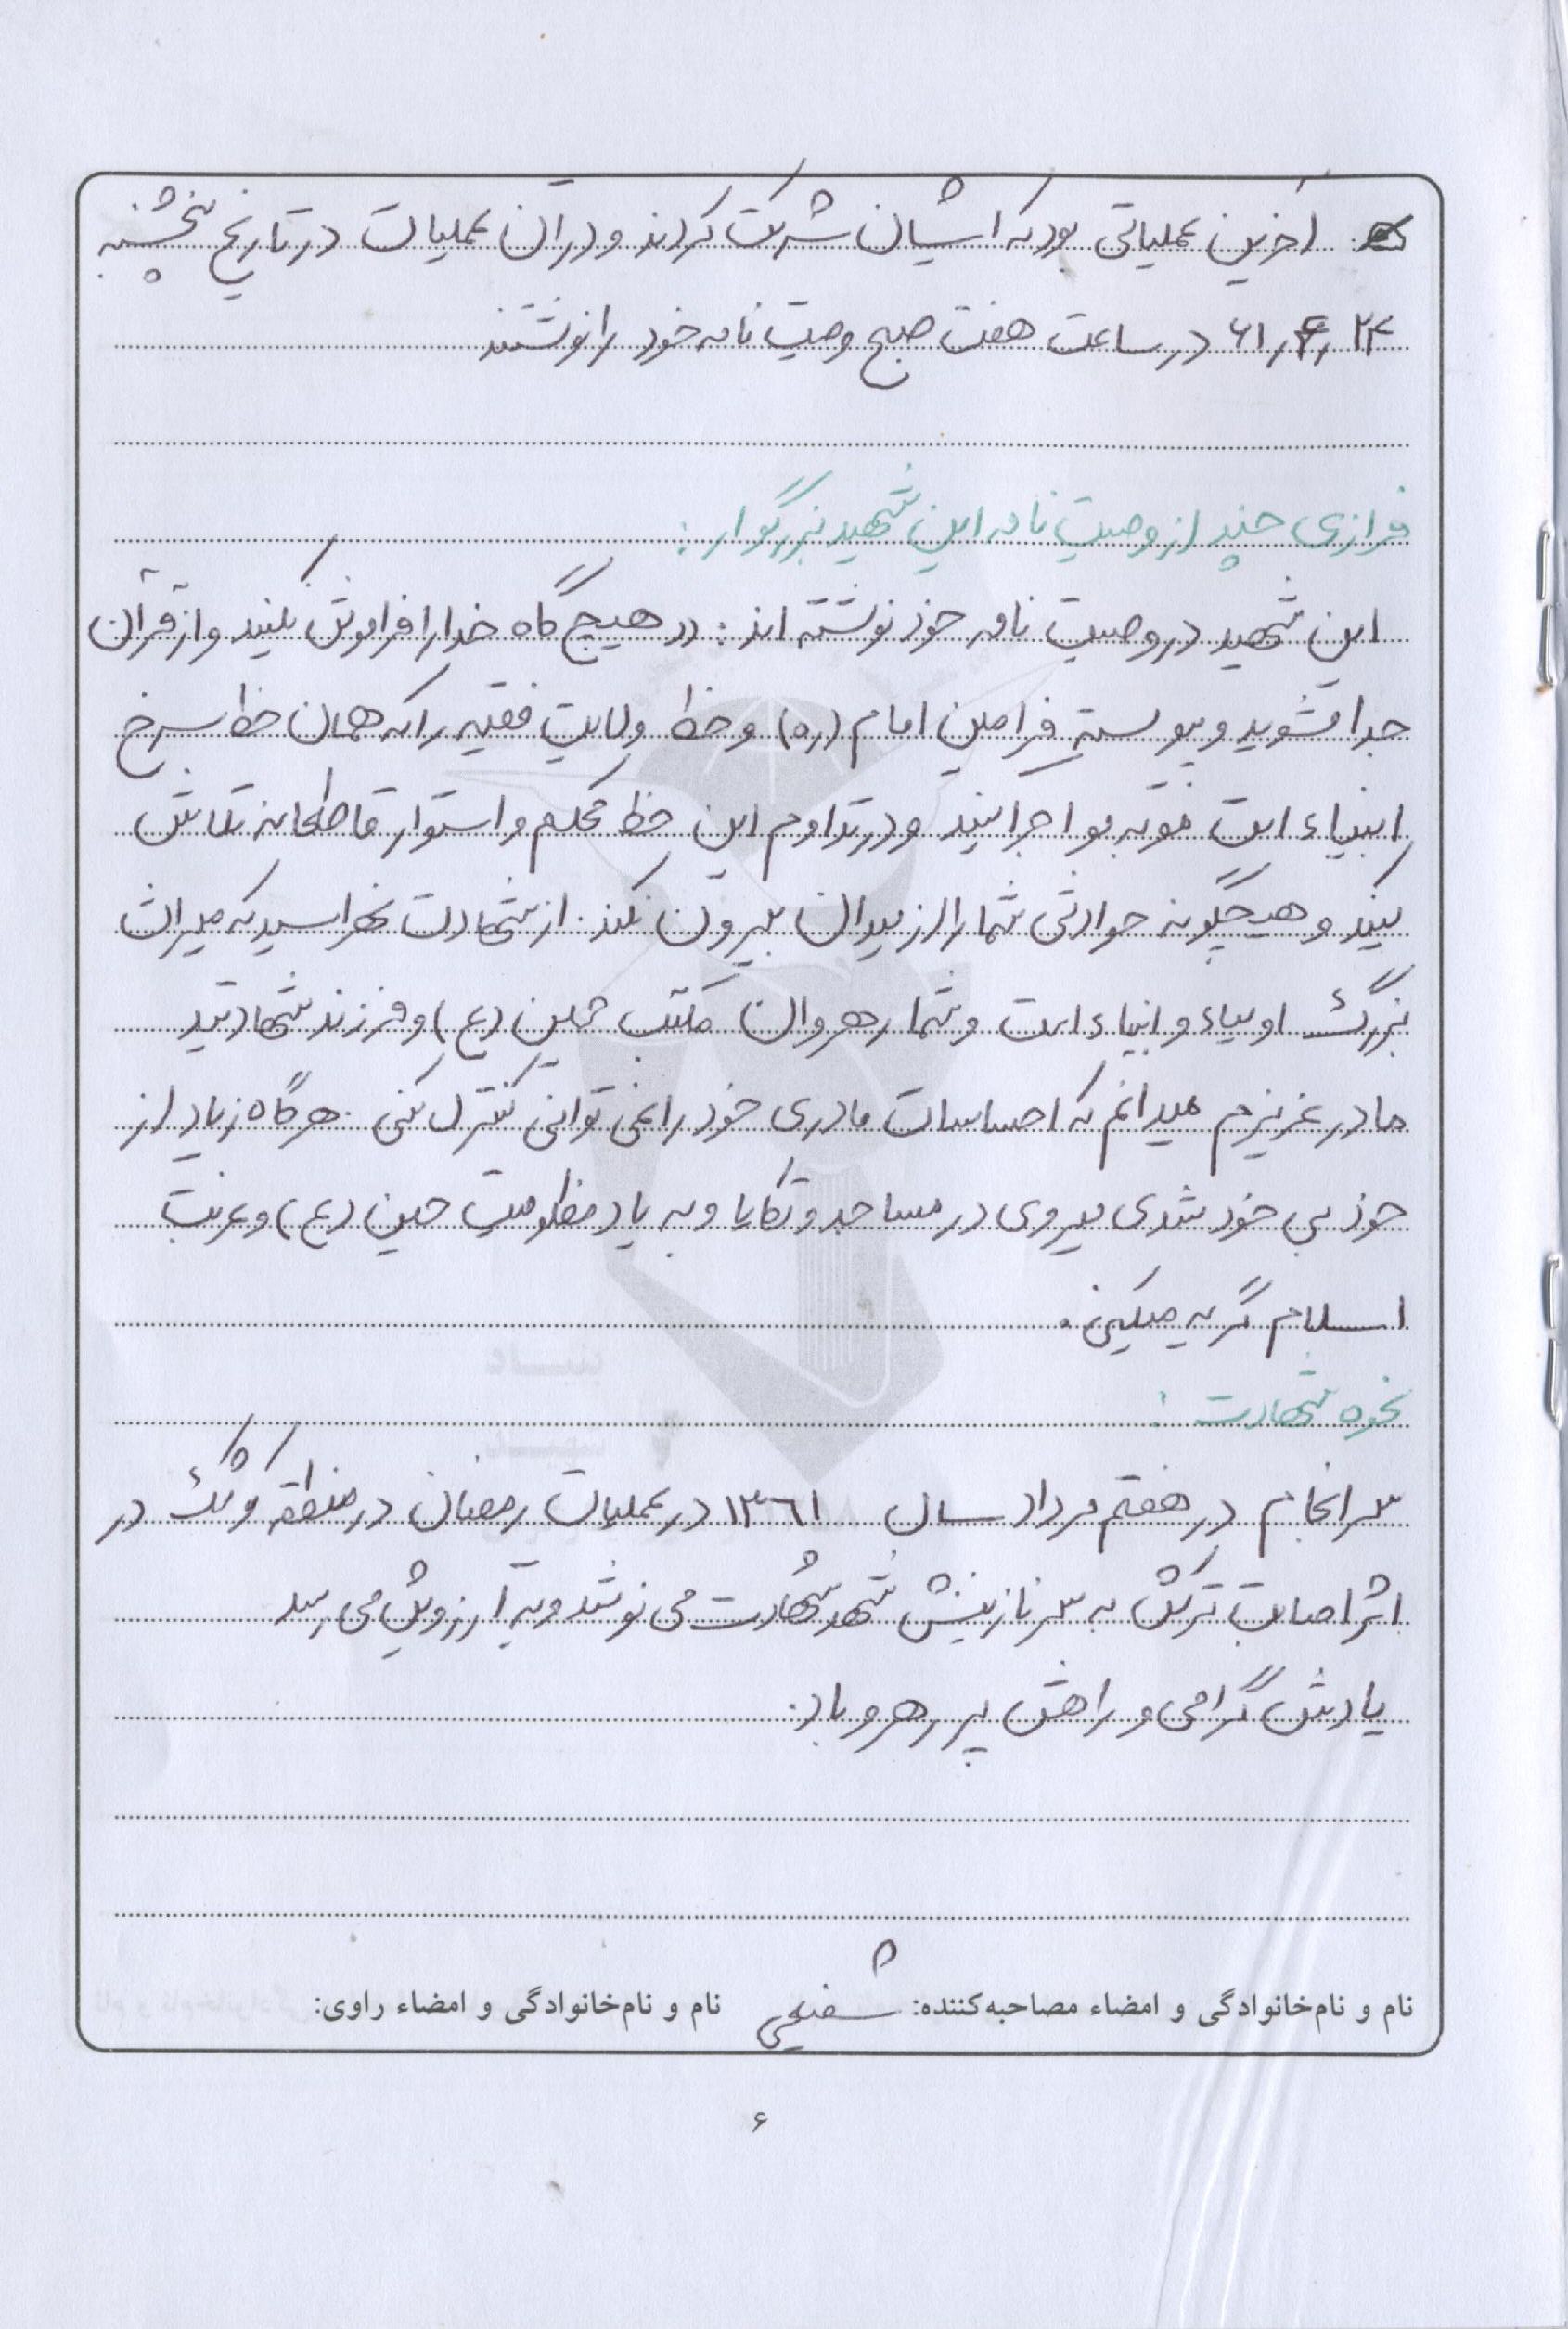 آخرین عملیاتی بود که ایشان شرکت کردند و در آن عملیات در تاریخ پنجشنبه
۶۱٫۴٫۲۴ در ساعت هفت صبح وصیت نامه خود را نوشتند
فرازی چند از وصیت نامه این شهید بزرگوار :
این شهید در وصیت نامه خود نوشته اند : (( هیچ گاه خدا را فراموش نکنید و از قرآن
جدا نشوید و پیوسته فرامین امام (ره) و خط ولایت فقیه را که همان خط سرخ
انبیاء است مو به مو اجرا کنید و در تداوم این خط محکم و استوار قاطعانه تلاش
کنید و هیچگونه حوادثی شما را از میدان بیرون نکند . از شهادت نهراسید که میراث
بزرگ اولیاء و انبیاء است و شما رهروان مکتب حسین (ع) و فرزند شهادتید
مادر عزیزم میدانم که احساسات مادری خود را نمی توانی کنترل کنی . هرگاه زیاد از
خود بی خود شدی میروی در مساجد و تکایا و به یاد مظلومیت حسین (ع) و غربت
اسلام گریه میکنی .
نحوه شهادت :
سرانجام در هفتم مرداد سال ۱۳۶۱ در عملیات رمضان در منطقه کوشک در
اثر اصابت ترکش به سر نازنینش شهد شهادت می نوشد و به آرزویش می رسد
یادش گرامی و راهش پر رهرو باد .
نام و نام‌خانوادگی و امضاء مصاحبه‌کننده: شفیعی نام و نام‌خانوادگی و امضاء راوی:
۶